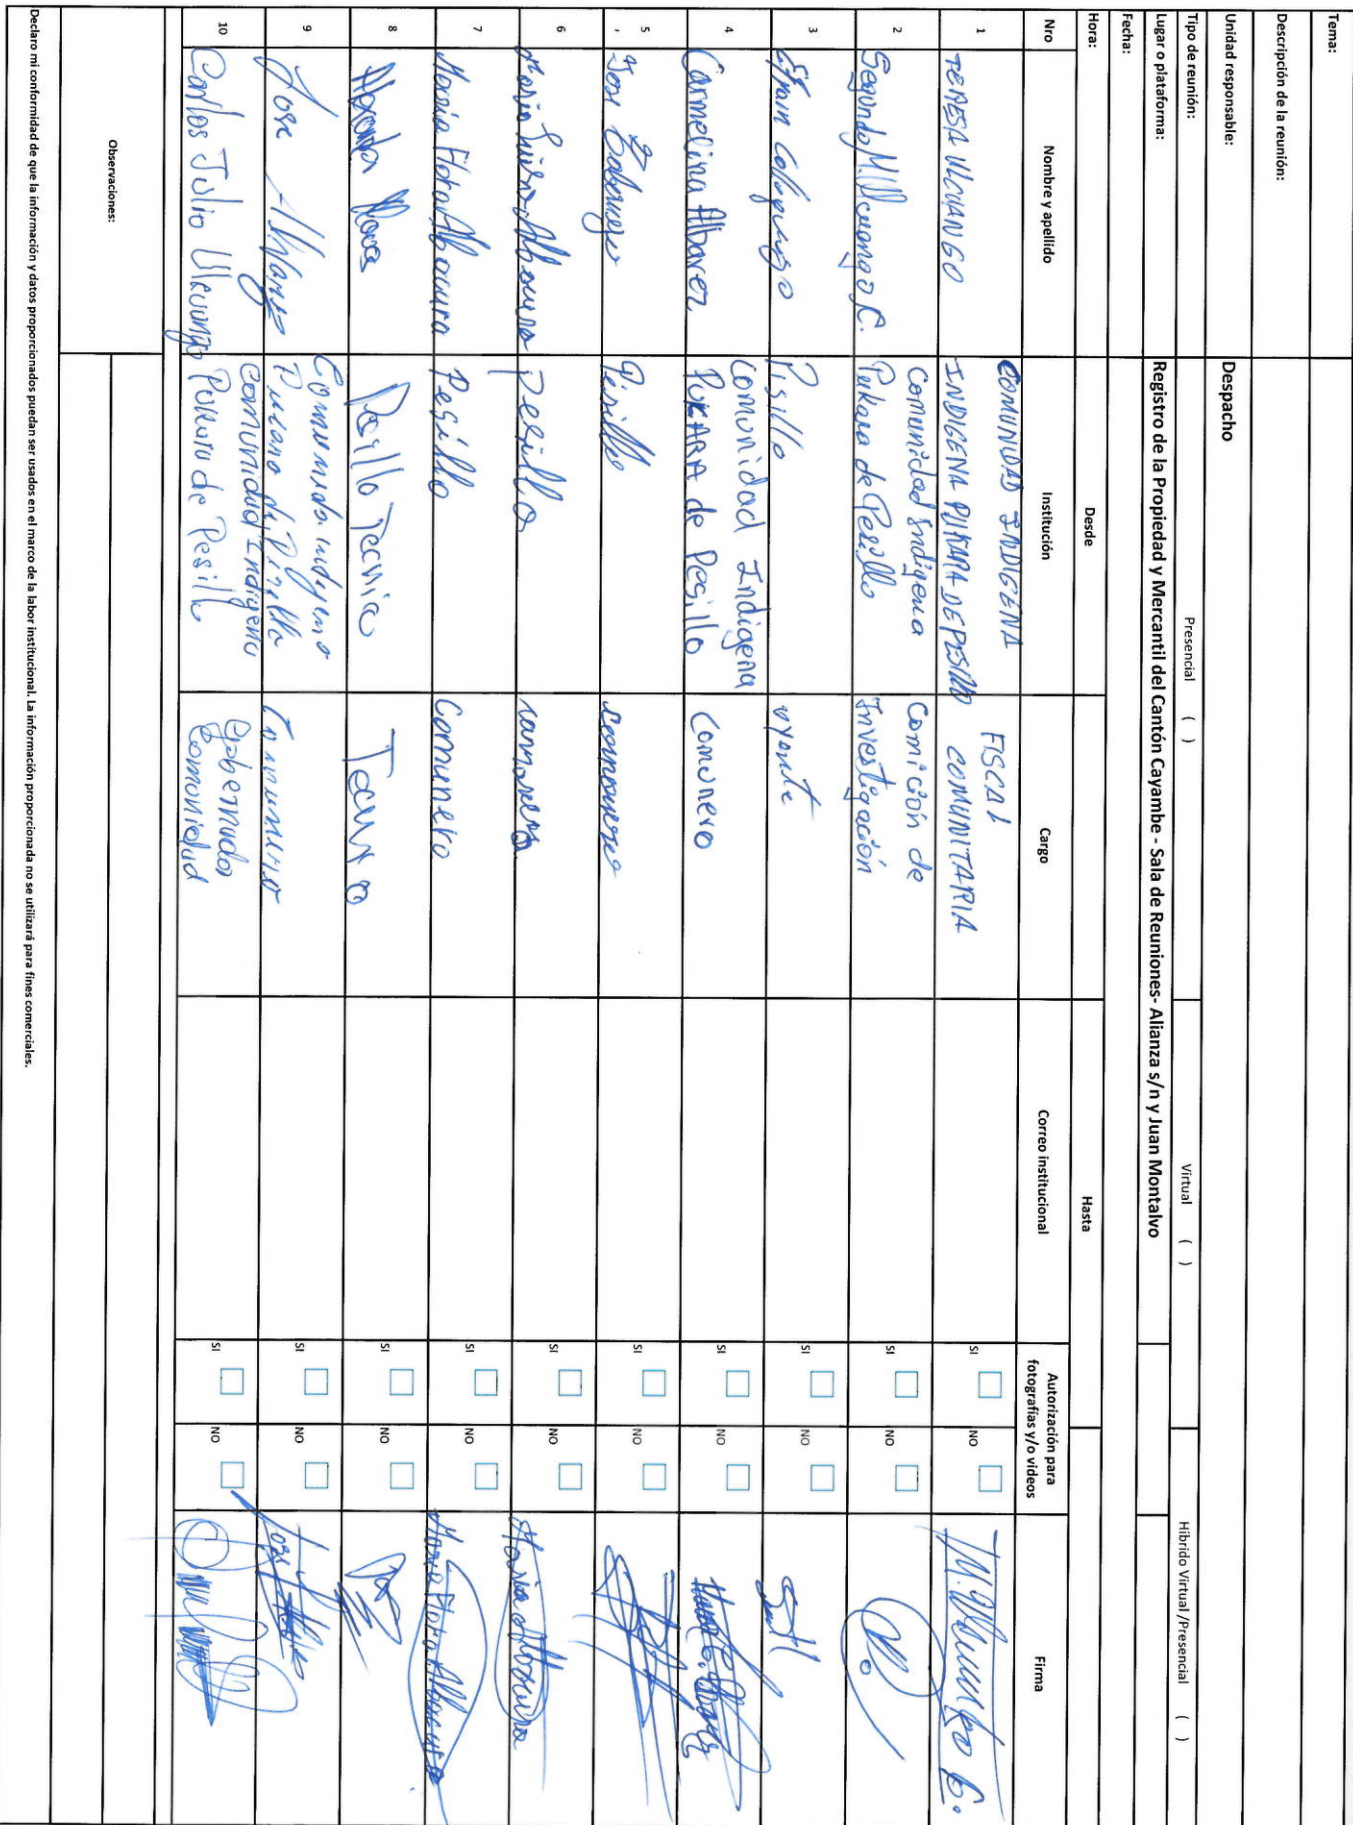 Tema:
Descripción de la reunión:
Unidad responsable: Despacho
Tipo de reunión: Presencial ( ) Virtual ( ) Hibrido Virtual /Presencial ( )
Lugar o plataforma: Registro de la Propiedad y Mercantil del Cantón Cayambe - Sala de Reuniones- Alianza s/n y Juan Montalvo
Fecha:
Hora: Desde Hasta
Nro Nombre y apellido Institución Cargo Correo institucional Autorización para fotografías y/o videos Firma
1 TERESA ULCUANGO COMUNIDAD INDIGENA PUKARA DE PESILLO FISCAL COMUNITARIA SI NO
2 Segundo M. Ulcuango C. Comunidad Indígena Pukara de Pesillo Comición de Investigación SI NO
3 Efrain Pisillo oyente SI NO
4 Carmelina Albacez Comunidad Indigena PUKARA de Pesillo Comunero SI NO
5 Jose Pesillo comunero SI NO
6 Maria Luisa Albacura Pesillo comunera SI NO Maria Albacura
7 Maria Flora Albacura Pesillo Comunero SI NO Maria Flora Albacura
8 Pesillo Tecnico SI NO
9 Jose Comunida indigena Pucara de Pesillo Comunero SI NO Jose
10 Carlos Julio Ulcuango comunidad Indigena Pukara de Pesillo Gobernador comunidad SI NO
Observaciones:
Declaro mi conformidad de que la información y datos proporcionados puedan ser usados en el marco de la labor institucional. La información proporcionada no se utilizará para fines comerciales.